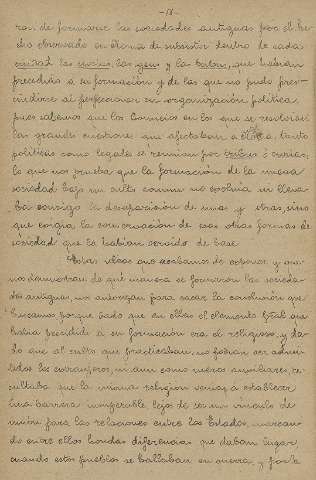 ron de formarse las sociedades antiguas por el he-
cho observado en Roma de subsistir dentro de cada
ciudad las curias, las gens y las tribus, que habian
precedido a su formación y de las que no pudo pres-
cindirse al perfeccionar su organización política,
pues sabemos que los Comicios en los que se resolvian
las grandes cuestiones que afectaban a ella, tanto
politicas como legales se reunian por tribus ó curias,
lo que nos prueba que la formación de la nueva
sociedad bajo un culto comun no excluia ni lleva-
ba consigo la desaparición de unas y otras, sino
que exigia la conservación de esas otras formas de
sociedad que la habian servido de base.
Estas ideas que acabamos de exponer y que
nos demuestran de qué manera se formaron las socieda-
des antiguas, nos autorizan para sacar la conclusión que
buscamos porque dado que en ellas el elemento que
habia presidido a su formación era el religioso, y da-
do que al culto que practicaban no podian ser admi-
tidos los extranjeros, ni aun como meros auxiliares, re-
sultaba que la misma religion venia a establecer
una barrera insuperable, lejos de ser un vínculo de
unión para las relaciones entre los Estados, marcan-
do entre ellos hondas diferencias que daban lugar,
cuando estos pueblos se hallaban en guerra, y